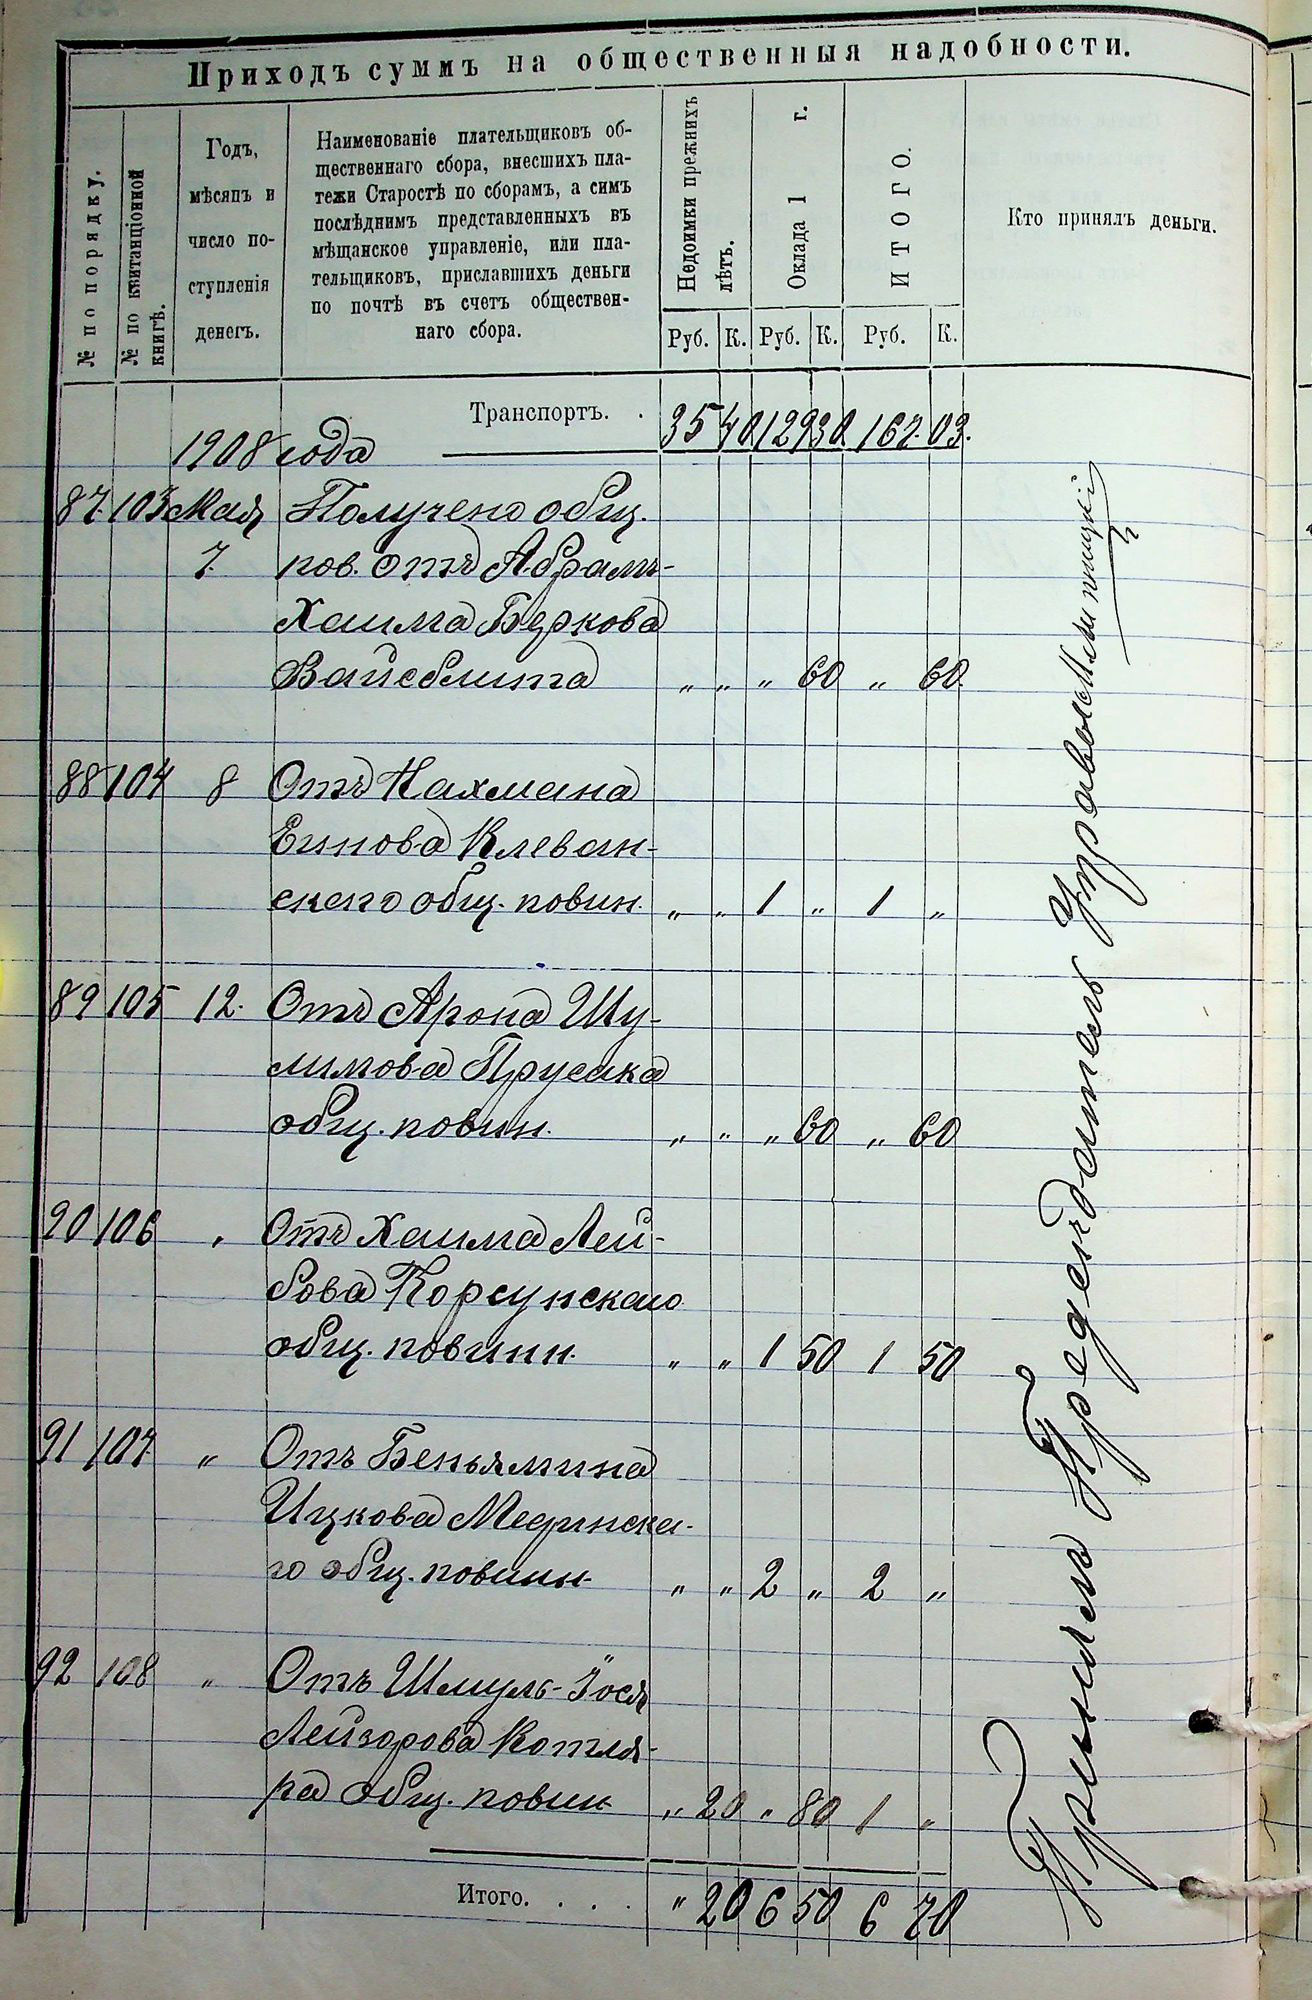 Приходъ суммъ на общественныя надобности.
№ по порядку.
№ по квитанціонной книгѣ.
Годъ,
мѣсяцъ и
число по-
ступленія
денегъ.
Наименованіе плательщиковъ об-
щественнаго сбора, внесшихъ пла-
тежи Старостѣ по сборамъ, а симъ
послѣднимъ представленныхъ въ
мѣщанское управленіе, или пла-
тельщиковъ, приславшихъ деньги
по почтѣ въ счетъ обществен-
наго сбора.
Недоимки прежнихъ лѣтъ.
Оклада 1 г.
ИТОГО.
Кто принялъ деньги.
Руб. К. Руб. К. Руб. К.
Транспортъ. . 35 40 129 30 167. 03.
1908 года
87. 103 Мая Получено общ.
7. пов. отъ Абрамъ-
Хаима Беркова
Вайсблита „ „ „ 60 „ 60.
88 104 8 Отъ Нахмана
Еинова Клеван-
скаго общ. повин. „ „ 1 „ 1 „
89 105 12. Отъ Арона Шу-
лимова Прусака
общ. повин. „ „ „ 60 „ 60
90 106 „ Отъ Хаима Лей-
бова Корсунскаго
общ. повинн. „ „ 1 50 1 50
91 107 „ Отъ Беньямина
Ицкова Мединска-
го общ. повинн. „ „ 2 „ 2 „
92 108 „ Отъ Шмуль-Іося
Лейзорова Котля-
ра общ. повин. „ 20 „ 80 1 „
Итого. . . . „ 20 6 50 6 70
Принялъ Предсѣдатель Управы